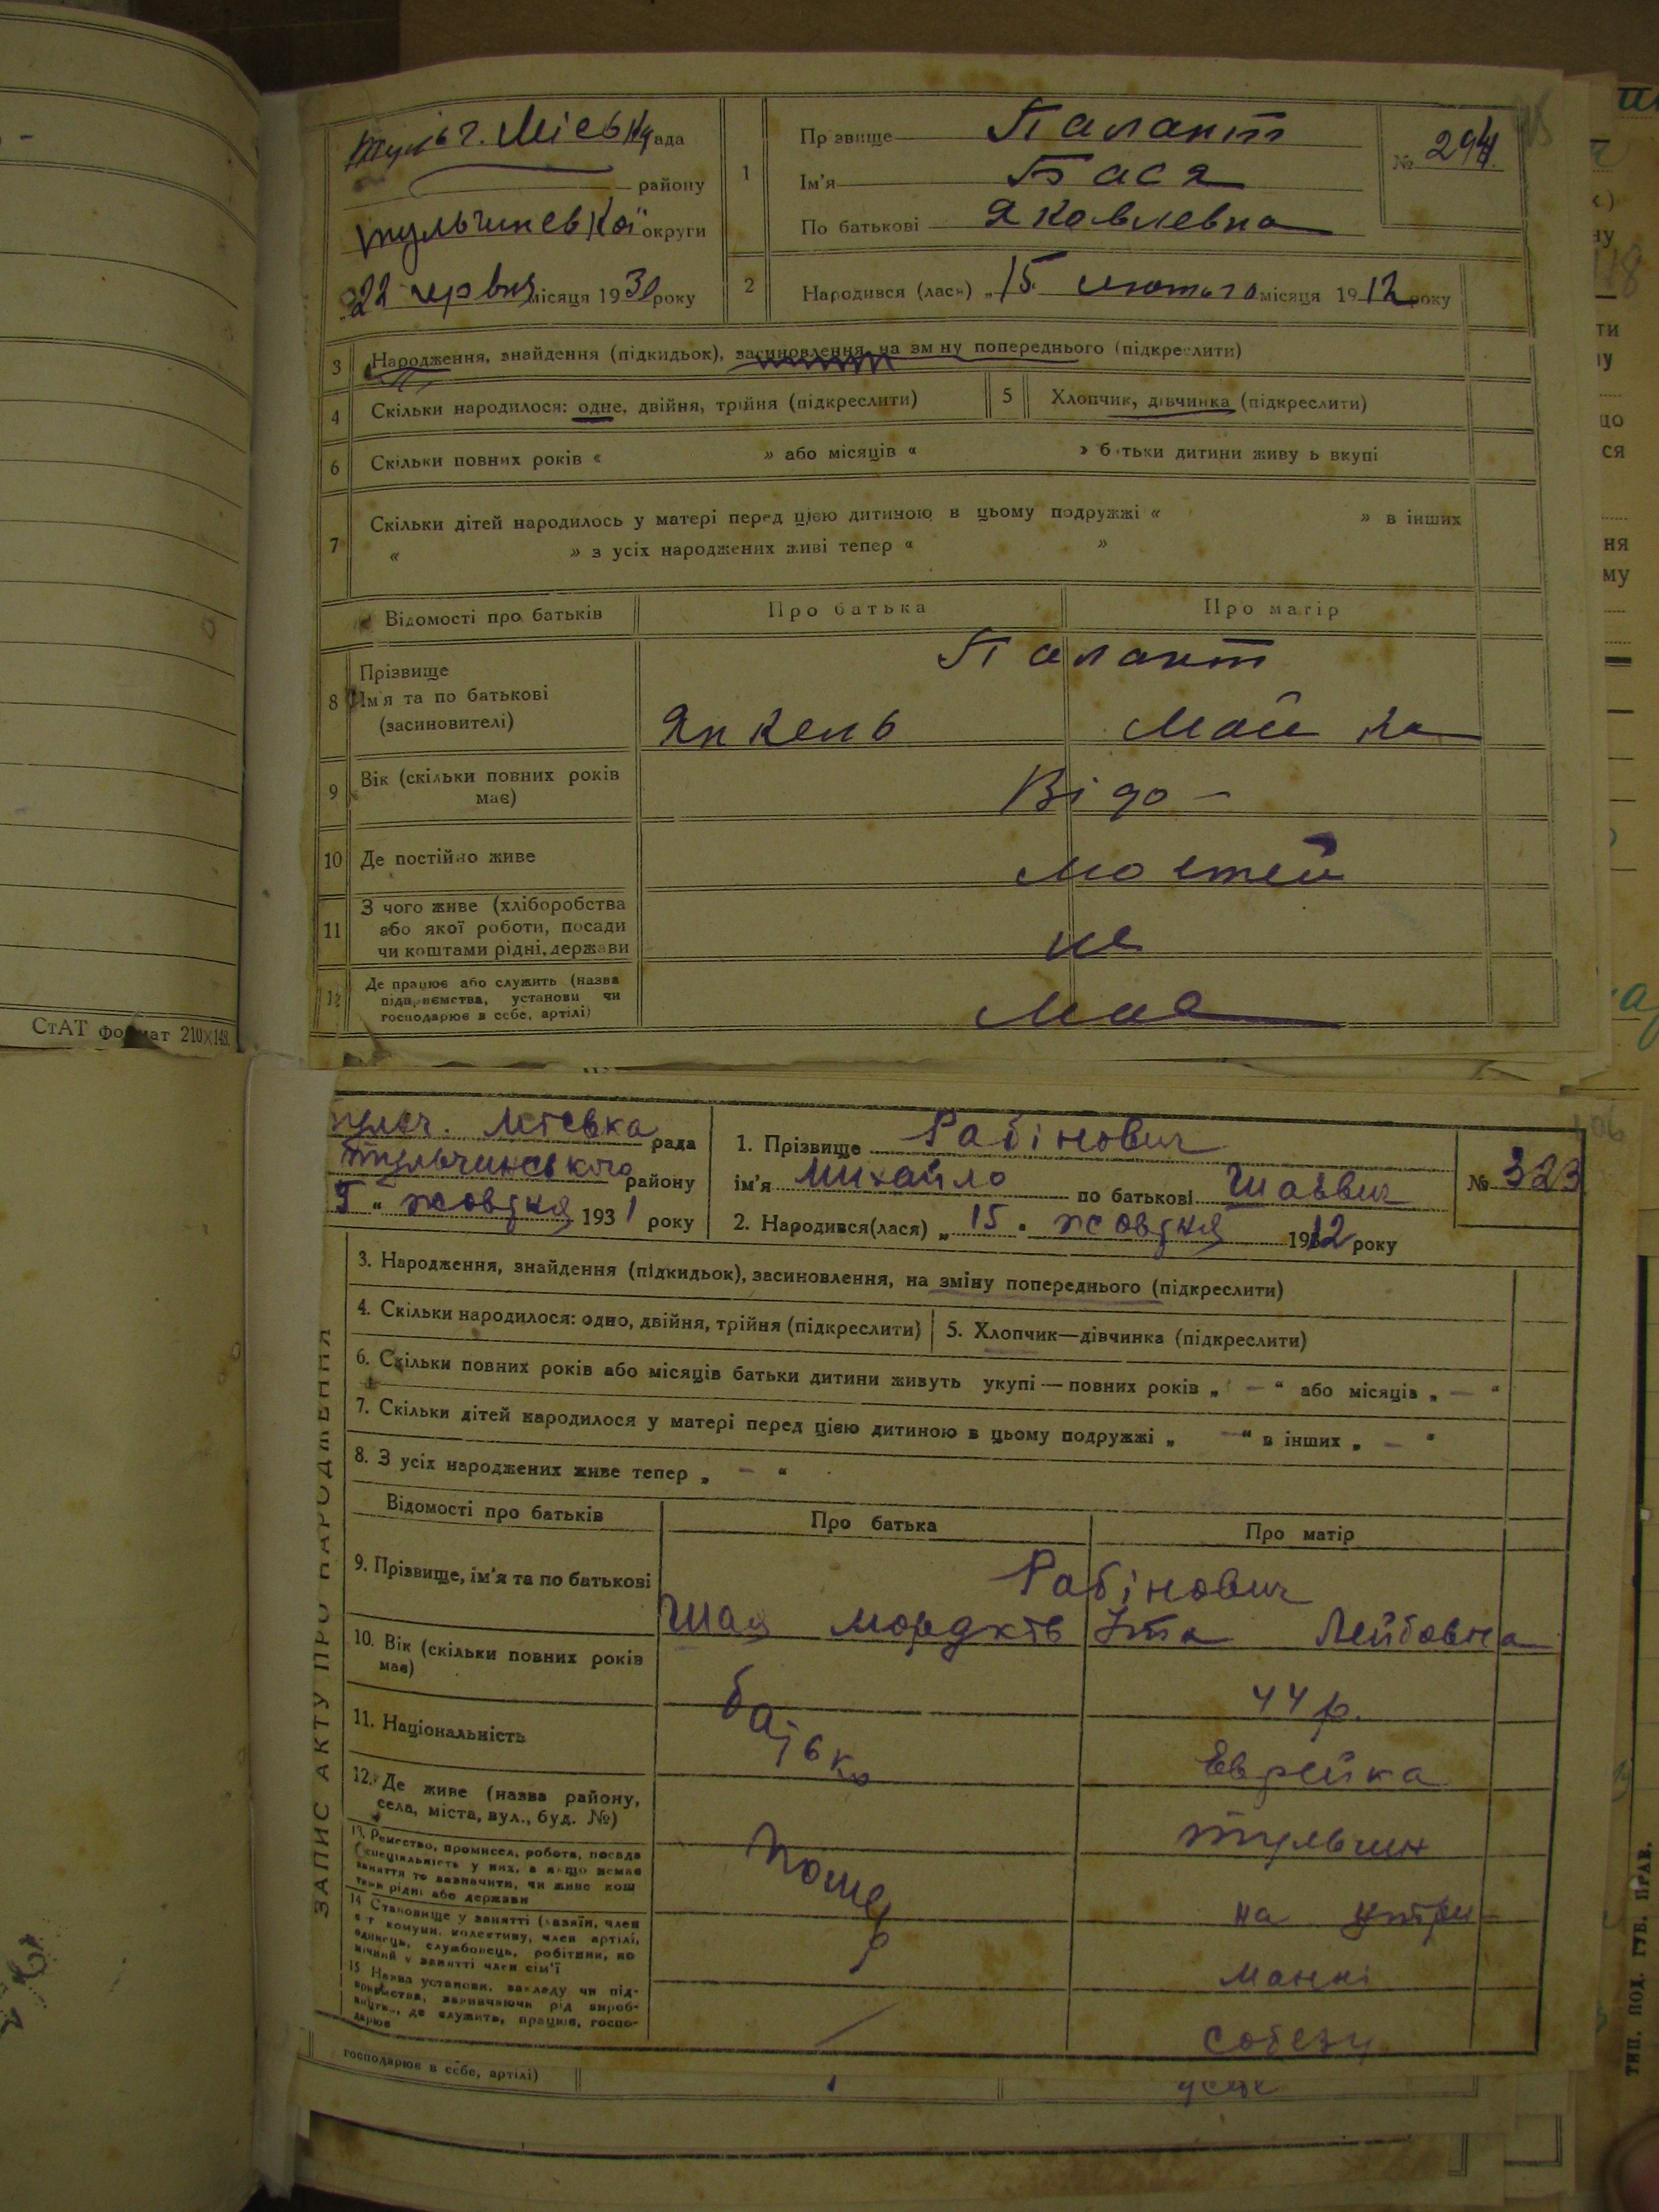 СтАТ формат 210×148.
Тульч. Міськ рада
району
Тульчинської округи
22 червня місяця 1930 року
1
Прізвище Палант
Ім'я Бася
По батькові Яковлевна
№ 294.
2
Народився (лася) „15. лютого місяця 1912 року
3 Народження, знайдення (підкидьок), засиновлення, на зміну попереднього (підкреслити)
4 Скільки народилося: одне, двійня, трійня (підкреслити)
5 Хлопчик, дівчинка (підкреслити)
6 Скільки повних років « » або місяців « » батьки дитини живуть вкупі
7 Скільки дітей народилось у матері перед цією дитиною в цьому подружжі « » в інших
« » з усіх народжених живі тепер « »
Відомості про батьків
Про батька
Про матір
8 Прізвище
Ім'я та по батькові
(засиновителі)
Палант
Янкель
9 Вік (скільки повних років
має)
Відо-
10 Де постійно живе
мостей
11 З чого живе (хліборобства
або якої роботи, посади
чи коштами рідні, держави
не
12 Де працює або служить (назва
підприємства, установи чи
господарює в себе, артілі)
має
тульч. Міська рада
Тульчинського району
5 “ жовтня 1931 року
1. Прізвище Рабінович
ім'я Михайло по батькові Шаєвич
№ 323
2. Народився(лася) „ 15 “ жовтня 1912 року
3. Народження, знайдення (підкидьок), засиновлення, на зміну попереднього (підкреслити)
4. Скільки народилося: одно, двійня, трійня (підкреслити)
5. Хлопчик—дівчинка (підкреслити)
6. Скільки повних років або місяців батьки дитини живуть укупі — повних років „ — “ або місяців „ — “
7. Скільки дітей народилося у матері перед цією дитиною в цьому подружжі „ — “ в інших „ — “
8. З усіх народжених живе тепер „ — “
Відомості про батьків
Про батька
Про матір
9. Прізвище, ім'я та по батькові
Рабінович
Шая Мордків
Іта Лейбовна
10. Вік (скільки повних років
має)
батько
44 р.
11. Національність
Еврейка
12. Де живе (назва району,
села, міста, вул., буд. №)
помер
Тульчин
13. Ремество, промисел, робота, посада
(спеціальність у них, а якщо немає
заняття то зазначити, чи живе кош
тами рідні або держави
на утри
14 Становище у занятті (хазяїн, член
с г комуни, колективу, член артілі,
одинець, службовець, робітник, по
мічний у занятті член сім'ї
манні
15 Назва установи, закладу чи під-
приємства, зазначаючи рід вироб-
ництва, де служить, працює, госпо-
дарює
собезу
ЗАПИС АКТУ ПРО НАРОДЖЕННЯ
господарює в себе, артілі)
ТИП. ПОД. ГУБ. ПРАВ.